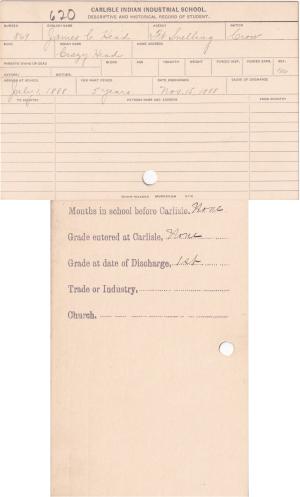 620
CARLISLE INDIAN INDUSTRIAL SCHOOL.
DESCRIPTIVE AND HISTORICAL RECORD OF STUDENT.
NUMBER ENGLISH NAME AGENCY NATION
869 James C Head Ft Snelling Crow
BAND INDIAN NAME HOME ADDRESS
Crazy Head
PARENTS LIVING OR DEAD BLOOD AGE HEIGHT WEIGHT FORCED INSP. FORCED EXPR. SEX
FATHER MOTHER
ARRIVED AT SCHOOL FOR WHAT PERIOD DATE DISCHARGED
July 1, 1888 5 years Nov. 15, 1888
TO COUNTRY PATRONS NAME AND ADDRESS FROM COUNTRY
Months in school before Carlisle, None
Grade entered at Carlisle, None
Grade at date of Discharge, 1st
Trade or Industry,
Church.